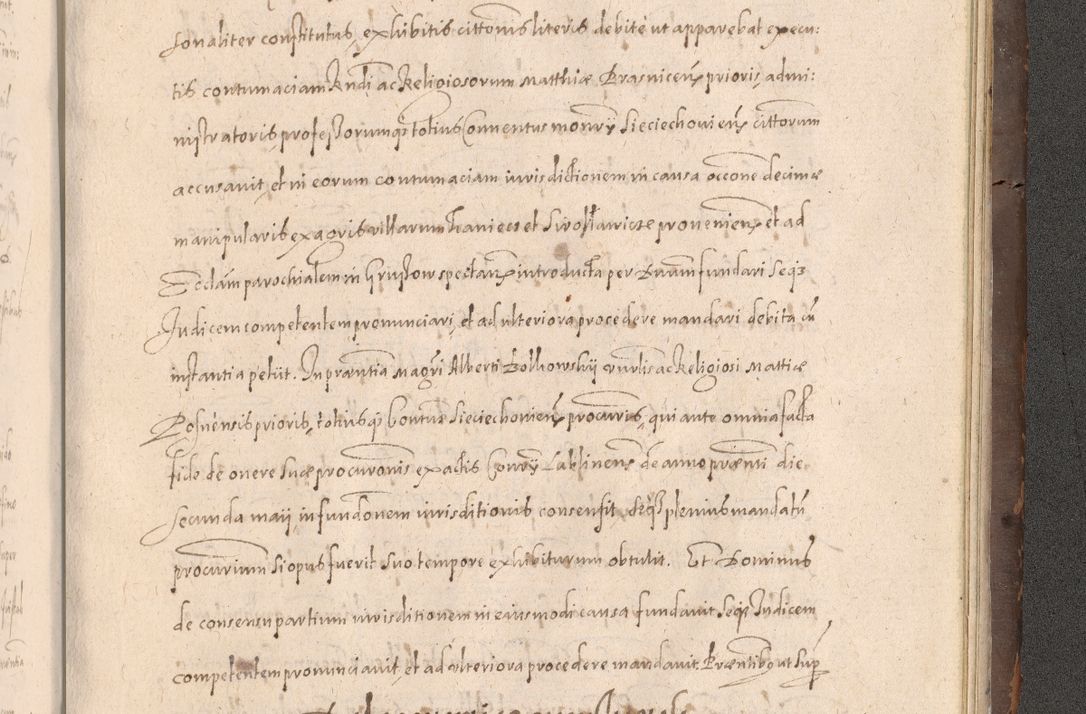 sonaliter constitutus, exhibitis cittonis literis debite ut apparebat execu:
tis contumaciam Rndi ac Religiosorum Matthiæ Brasnicen prioris, admi:
nistratoris professorumq totius Conventus monry Sieciechovien cittorum
accusavit, et in eorum contumaciam iurisdictionem in causa occone decimæ
manipularis ex agris villarum et provenien et ad
Ecclam parochialem in spectan introducta per Dnum fundari Seq
Judicem competentem pronunciari, et ad ulteriora procedere mandari debita cu
instantia petiit. In præntia Magri Alberti ac Religiosi Mattiæ
prioris, totiusq Contus Sieciechovien procuris, qui ante omnia facta
fide de onere suæ procuronis ex actis Conry Lublinens de anno prænti die
Secunda maii in fundonem iurisditionis consensit. Seq plenius mandatu
procurium si opus fuerit suo tempore exhibiturum obtulit. Et Dominus
de consensu partium iurisditionem in eiusmodi causa fundavit Seq Judicem
competentem pronunciavit, et ad ulteriora procedere mandavit. Præntibo ut Sup